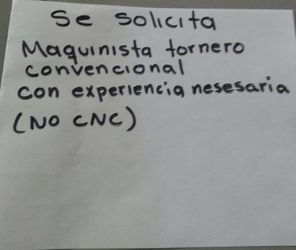 Se solicita
Maquinista tornero
convencional
con experiencia nesesaria
(No CNC)